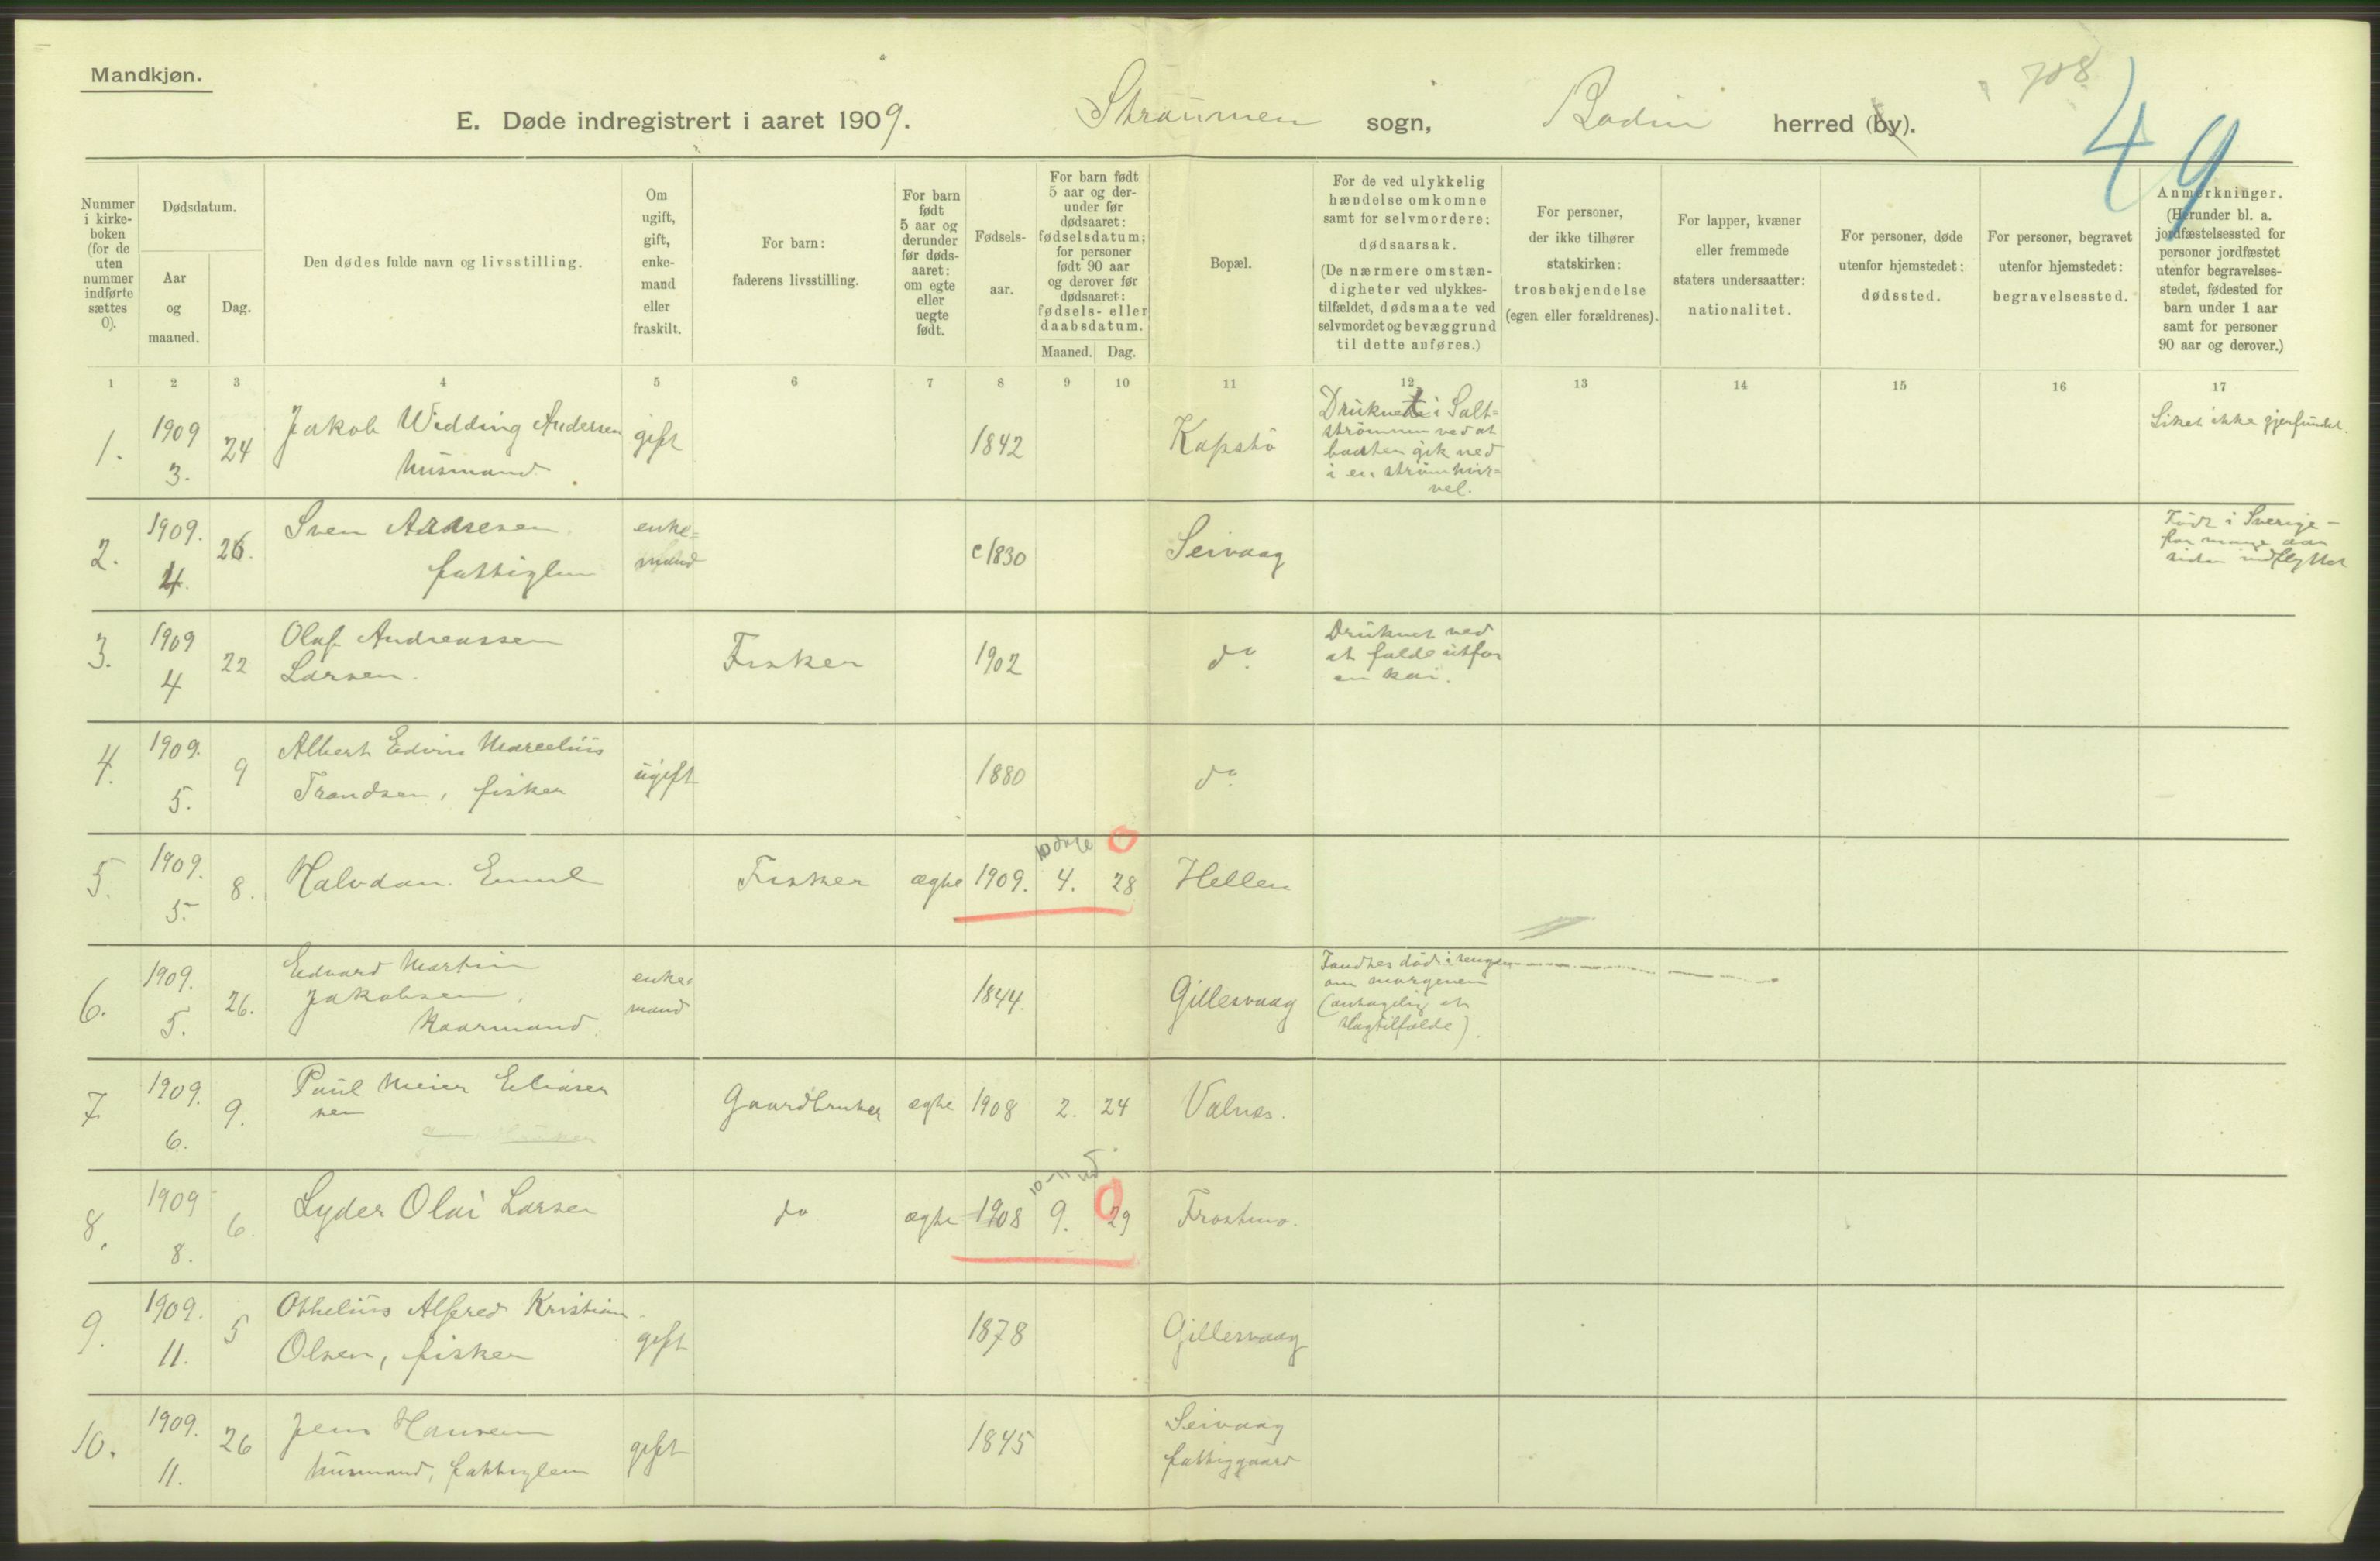 Mandkjøn.
708
49
E. Døde indregistrert i aaret 1909. Straumen sogn, Bodin herred (by).
Nummer i kirke-boken (for de uten nummer indførte sættes 0).
Dødsdatum.
Aar og maaned.
Dag.
Den dødes fulde navn og livsstilling.
Om ugift, gift, enke-mand eller fraskilt.
For barn: faderens livsstilling.
For barn født 5 aar og derunder før døds-aaret: om egte eller uegte født.
Fødsels-aar.
For barn født 5 aar og der-under før dødsaaret: fødselsdatum; for personer født 90 aar og derover før dødsaaret: fødsels- eller daabsdatum.
Maaned. Dag.
Bopæl.
For de ved ulykkelig hændelse omkomne samt for selvmordere: dødsaarsak. (De nærmere omstæn-digheter ved ulykkes-tilfældet, dødsmaate ved selvmordet og bevæggrund til dette anføres.)
For personer, der ikke tilhører statskirken: trosbekjendelse (egen eller forældrenes).
For lapper, kvæner eller fremmede staters undersaatter: nationalitet.
For personer, døde utenfor hjemstedet: dødssted.
For personer, begravet utenfor hjemstedet: begravelsessted.
Anmerkninger. (Herunder bl. a. jordfæstelsessted for personer jordfæstet utenfor begravelses-stedet, fødested for barn under 1 aar samt for personer 90 aar og derover.)
1 2 3 4 5 6 7 8 9 10 11 12 13 14 15 16 17
1. 1909 3. 24 Jakob Widding Andersen gift 1842 Kapstø
husmand
Druknet i Salt=
strømmen ved at
baaten gik ned
i en strømhvir=
vel.
Liket ikke gjenfundet.
2. 1909. 4. 26. Sven enke=
fattiglem mand c 1830 Seivaag
Født i Sverige -
for mange aar
siden indflyttet
3. 1909 4 22 Olaf Andreassen
Larsen. Fisker 1902 do
Druknet ved
at falde utfor
en kai.
4. 1909. 5. 9 Albert Edvin Marcelius
Trondsen, fisker ugift 1880 do
10 dage
5. 1909. 5. 8. Halvdan Emil Fisker ægte 1909. 4. 28 Hellen
6. 1909. 5. 26. Edvard Martin
Jakobsen,
kaarmand. enke=
mand 1844. Gillesvaag
Fandtes død i sengen
om morgenen
(antagelig et
slagtilfælde).
7. 1909. 6. 9. Paul Meier Eliasen
sen Gaardbruker ægte 1908 2. 24 Valnes.
8. 1909 8. 6. Lyder Olai Larsen do ægte 1908 9. 29
9. 1909. 11. 5 Othelius Alfred Kristian
Olsen, fisker gift 1878 Gillesvaag
10. 1909. 11. 26 Jens Hansen
husmand, fattiglem gift 1845 Seivaag
fattiggaard